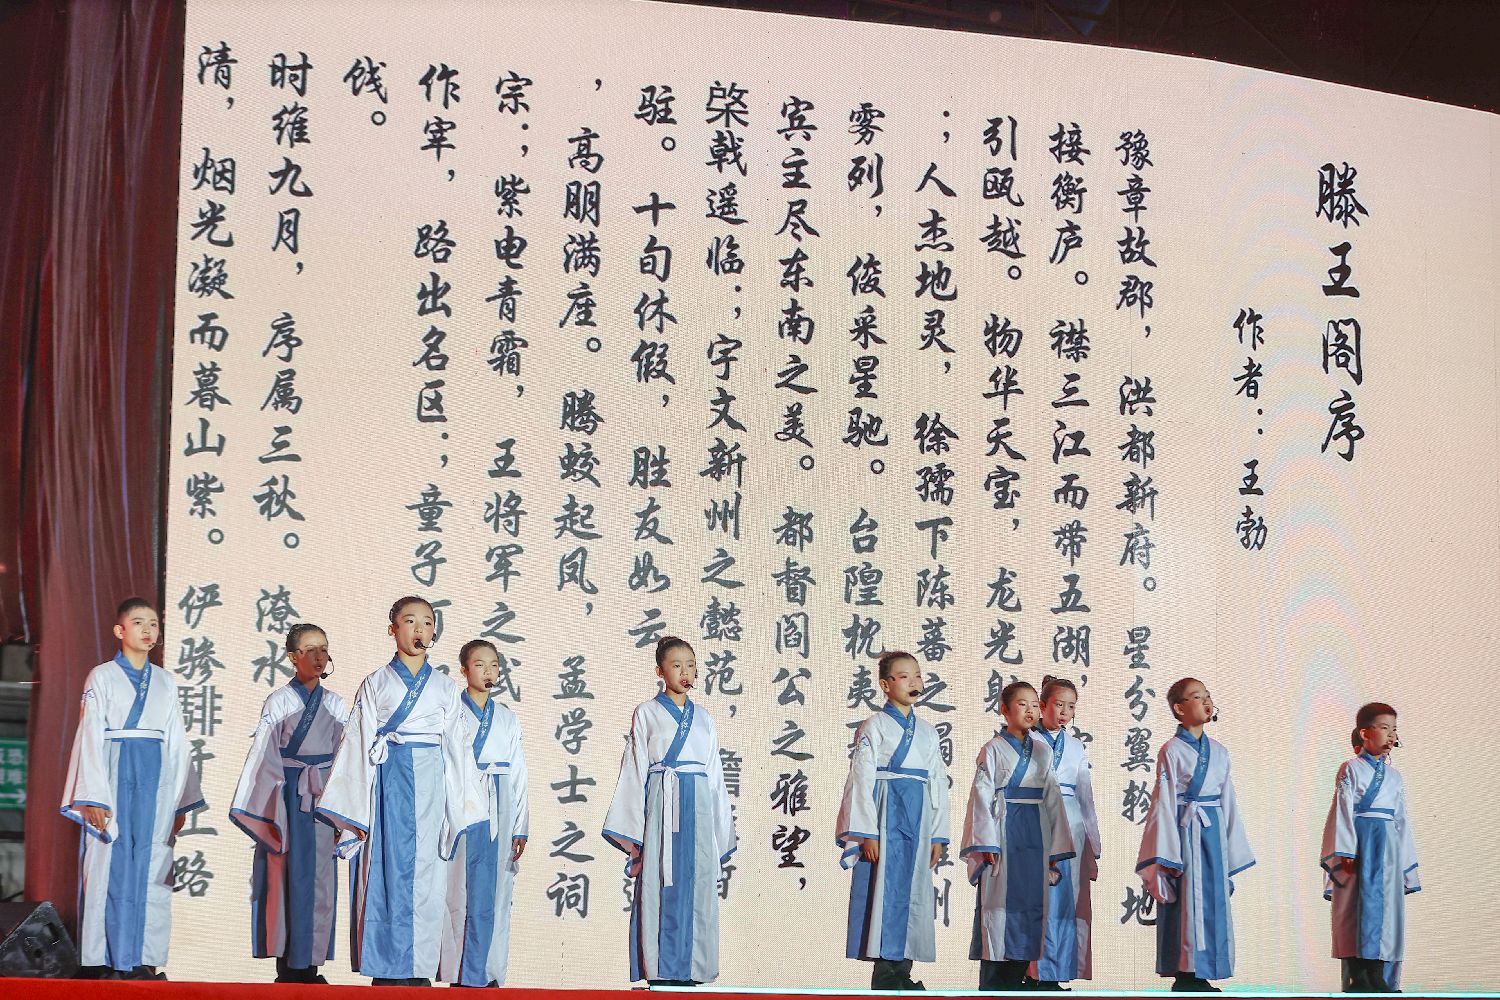 滕王阁序
作者：王勃
豫章故郡，洪都新府。星分翼轸 地
接衡庐。襟三江而带五湖，
引瓯越。物华天宝，龙光射
；人杰地灵，徐孺下陈蕃之榻。 州
雾列，俊采星驰。台隍枕夷
宾主尽东南之美。都督阎公之雅望，
棨戟遥临；宇文新州之懿范，
驻。十旬休假，胜友如云
，高朋满座。腾蛟起凤，孟学士之词
宗；紫电青霜，王将军之武
作宰，路出名区；童子
饯。
时维九月，序属三秋。潦水
清，烟光凝而暮山紫。俨骖騑于上路